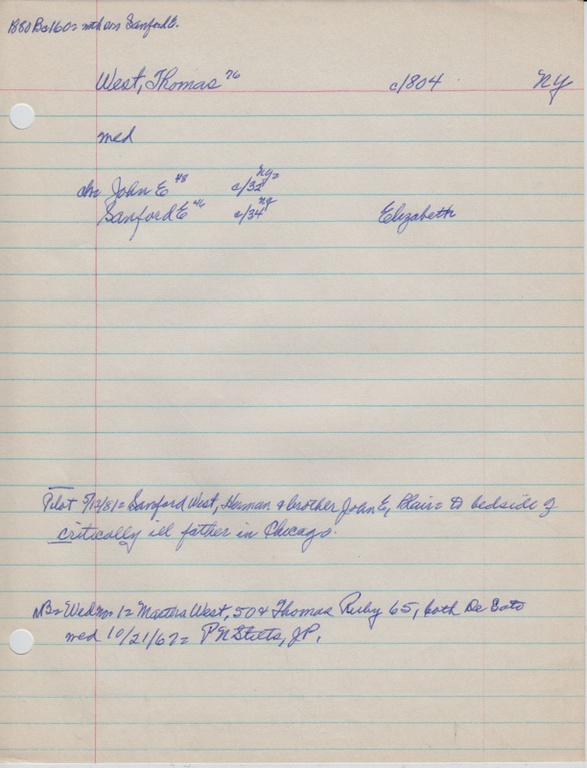 1880 Bc160= with son Sanford E.
West, Thomas 76 c/804 NY
med
ch= John E 48 c/32 NY=
Sanford E 46 c/34 NY Elizabeth
Pilot 5/12/81= Sanford West, Herman & brother John E, Blair= to bedside of
critically ill father in Chicago.
NB= Wed no 1= Masters West, 50 & Thomas Ruby 65, both De Soto
med 10/21/67= P N Stilts, JP.